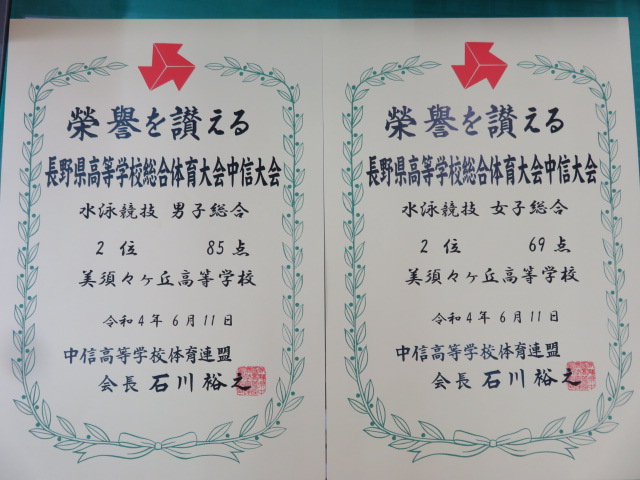 榮誉を讃える
長野県高等学校総合体育大会中信大会
水泳競技 男子総合
2位 85点
美須々ヶ丘高等学校
令和4年6月11日
中信高等学校体育連盟
会長 石川裕之
榮誉を讃える
長野県高等学校総合体育大会中信大会
水泳競技 女子総合
2位 69点
美須々ヶ丘高等学校
令和4年6月11日
中信高等学校体育連盟
会長 石川裕之